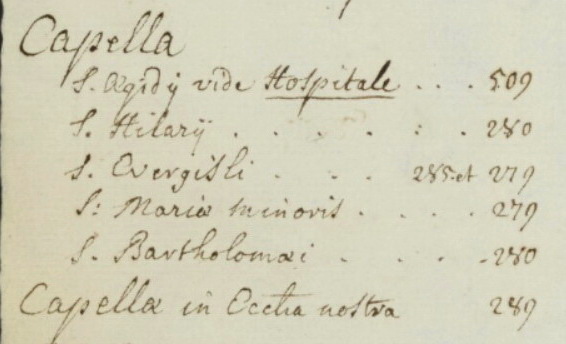 Capella
S. Ægidij vide Hospitale . . . 509
S. Hilarij . . . . : . 280
S. Evergisli . . . 285. et 279
S: Mariæ minoris . . . . 279
S. Bartholomæi . . . . 280
Capellæ in Eccl̄ia nostra 289